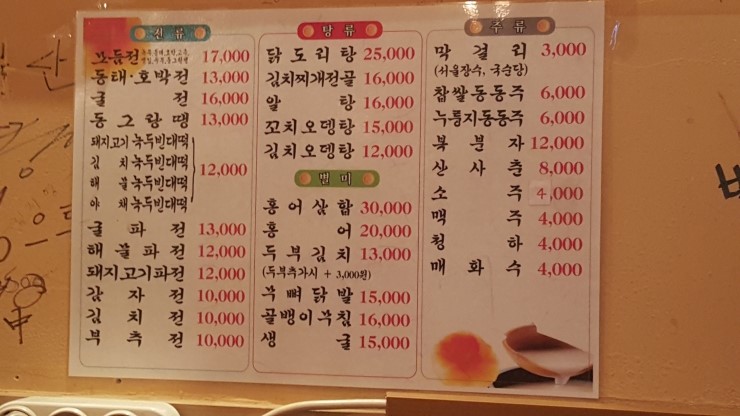 전 류
모듬전 17,000
동태·호박전 13,000
굴 전 16,000
동그랑땡 13,000
돼지고기 녹두빈대떡
김 치 녹두빈대떡
해 물 녹두빈대떡
야 채 녹두빈대떡
12,000
굴파전 13,000
해물파전 12,000
돼지고기파전 12,000
감자전 10,000
김치전 10,000
부추전 10,000
탕 류
닭도리탕 25,000
김치찌개전골 16,000
알 탕 16,000
꼬치오뎅탕 15,000
김치오뎅탕 12,000
별 미
홍어삼합 30,000
홍 어 20,000
두부김치 13,000
(두부추가시 + 3,000원)
무뼈닭발 15,000
골뱅이무침 16,000
생 굴 15,000
주 류
막걸리 3,000
(서울장수, 국순당)
찹쌀동동주 6,000
누룽지동동주 6,000
복분자 12,000
산사춘 8,000
소 주 4,000
맥 주 4,000
청 하 4,000
매화수 4,000